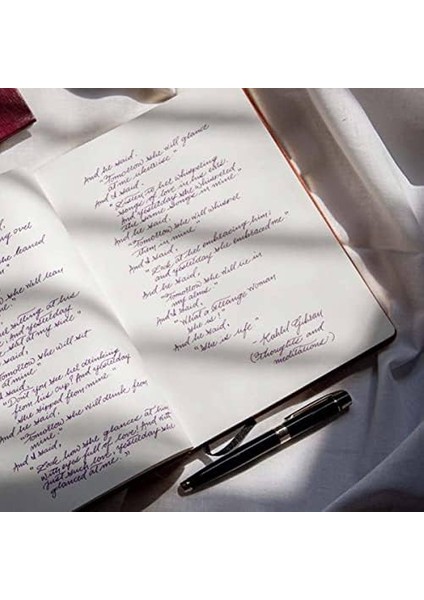 ing over
she leaned
she will lean
sitting at his
And yesterday
sat at my side"
"Tomorrow she will sit
at mine"
And I said,
"Don't you see her drinking
from his cup? And yesterday
she sipped from mine"
And he said,
"Tomorrow she will drink from
mine"
And I said,
"Look how she glances at him
with eyes full of love! And with
just such love, yesterday she
glanced at me."
And he said,
"Tomorrow she will glance
at me likewise"
And I said,
"Listen to her whispering
songs of love in his ears.
And yesterday she whispered
the same songs in mine"
And he said,
"Tomorrow she will whisper
them in mine"
And I said,
"Look at her embracing him;
and yesterday she embraced me"
And he said,
"Tomorrow she will lie in
my arms"
And I said,
"What a strange woman
she is!"
And he said,
"She is life"
- Kahlil Gibran
(thoughts and
meditations)